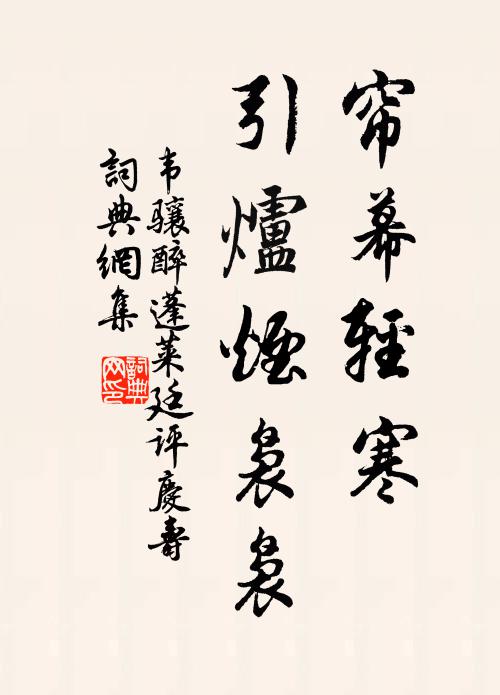 帘幕輕寒
引爐煙裊裊
韦骧醉蓬莱廷评慶壽
詞典網集
詞典网印